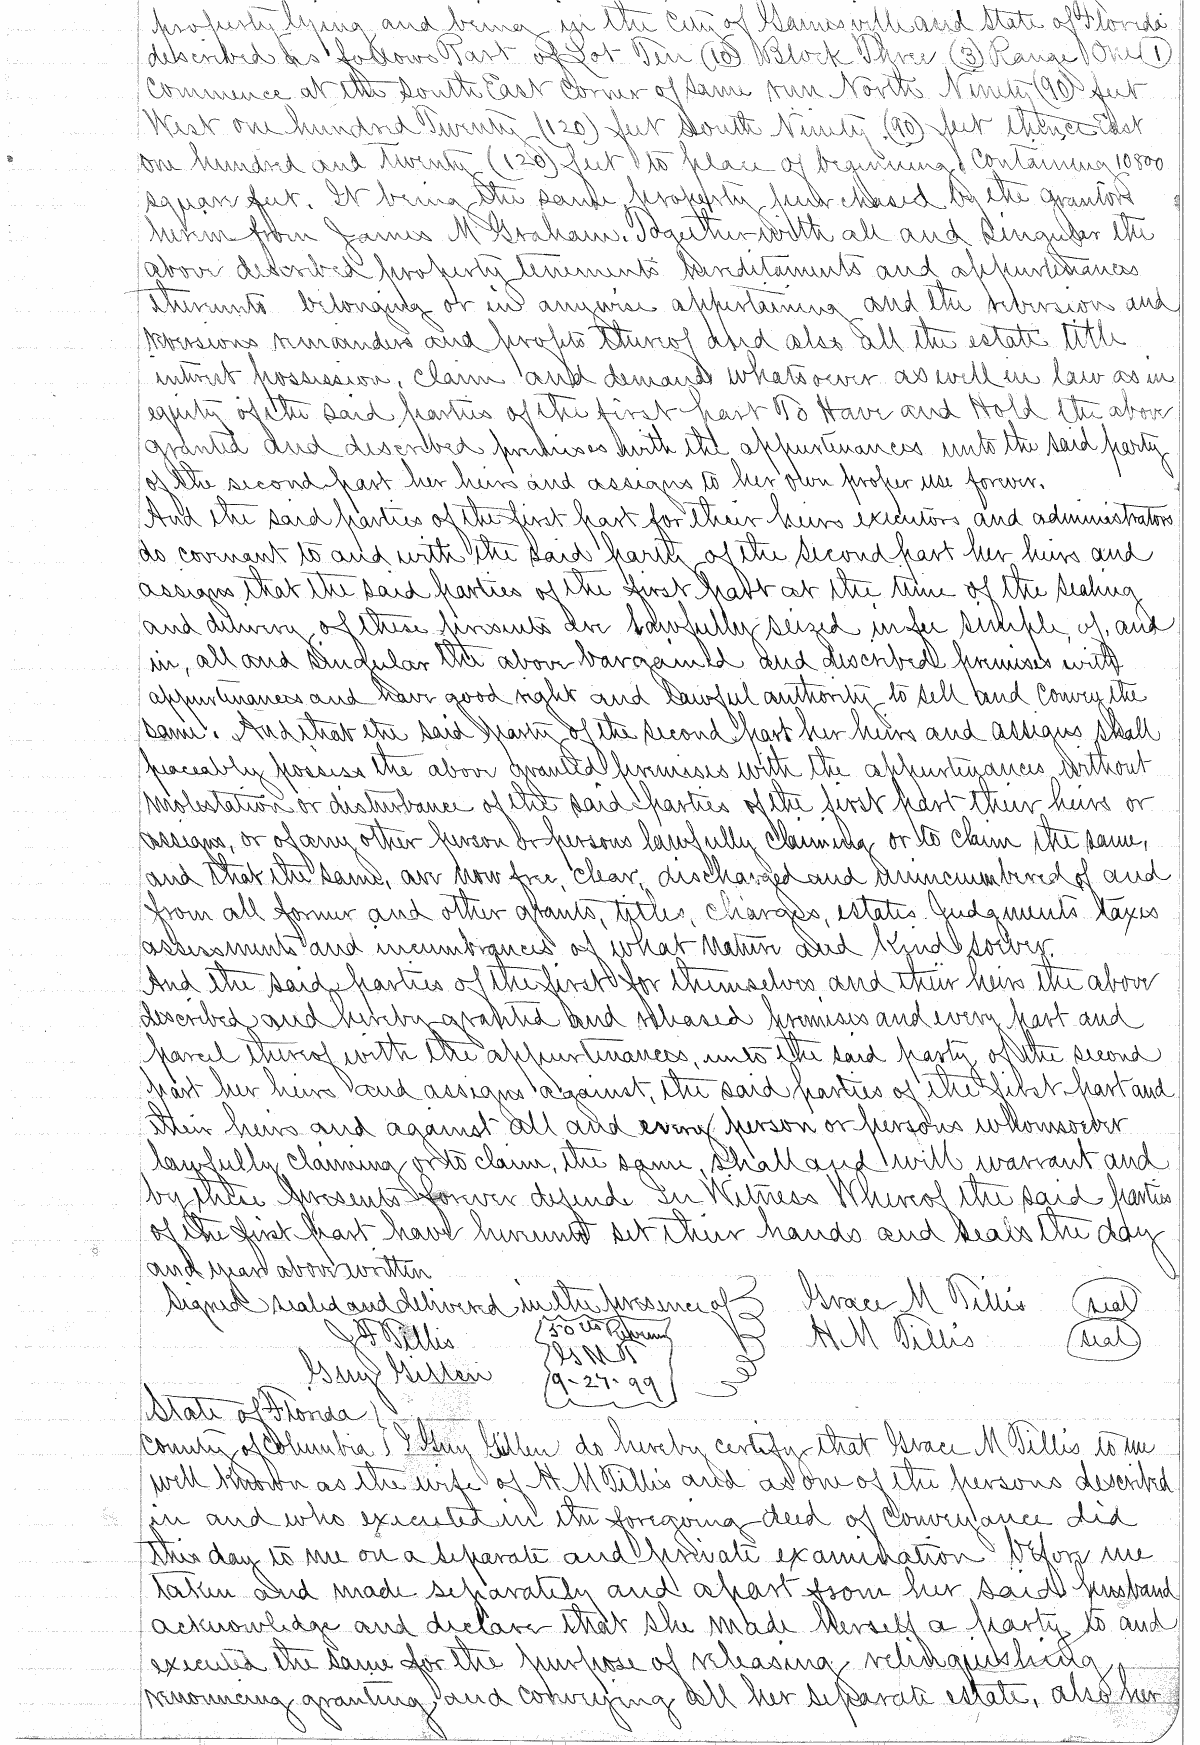 property lying and being in the City of Gainesville and State of Florida
described as follows Part of Lot Ten (10) Block Three (3) Range One (1)
Commence at the South East Corner of same run North Ninety (90) feet
West one hundred Twenty (120) feet South Ninety (90) feet thence East
one hundred and twenty (120) feet to place of beginning, Containing 10800
square feet. It being the same property purchased by the grantors
herein from James M Graham. Together with all and singular the
above described property tenements hereditaments and appurtenances
thereunto belonging or in anywise appertaining and the reversion and
reversions remainders and profits thereof and also all the estate title
interest possession, claim and demand whatsoever as well in law as in
equity of the said parties of the first part To Have and Hold the above
granted and described premises with the appurtenances unto the said party
of the second part her heirs and assigns to her own proper use forever.
And the said parties of the first part for their heirs executors and administrators
do covenant to and with the said party of the second part her heirs and
assigns that the said parties of the first part at the time of the sealing
and delivery of these presents are lawfully seized in fee simple, of, and
in, all and singular the above bargained and described premises with
appurtenances and have good right and lawful authority to sell and convey the
same. And that the said party of the second part her heirs and assigns shall
peaceably possess the above granted premises with the appurtenances without
molestation or disturbance of the said parties of the first part their heirs or
assigns, or of any other person or persons lawfully claiming or to claim the same,
and that the same, are now free, clear, discharged and unincumbered of and
from all former and other grants, titles, charges, estates Judgments taxes
assessments and incumbrances of what nature and kind soever.
And the said parties of the first for themselves and their heirs the above
described and hereby granted and released premises and every part and
parcel thereof with the appurtenances, unto the said party of the second
part her heirs and assigns against, the said parties of the first part and
their heirs and against all and every person or persons whomsoever
lawfully claiming or to claim, the same, shall and will warrant and
by these presents forever defend. In Witness Whereof the said parties
of the first part have hereunto set their hands and seals the day
and year above written
Signed sealed and delivered in the presence of Grace M Tillis (seal)
J F Tillis 50 cts Revenue H M Tillis (seal)
Guy Gillen G M T
9-27-99
State of Florida
County of Columbia I Guy Gillen do hereby certify that Grace M Tillis to me
well known as the wife of H M Tillis and as one of the persons described
in and who executed in the foregoing deed of Conveyance did
this day to me on a separate and private examination before me
taken and made separately and apart from her said husband
acknowledge and declare that she made herself a party to and
executed the same for the purpose of releasing relinquishing
renouncing granting and conveying all her separate estate, also her